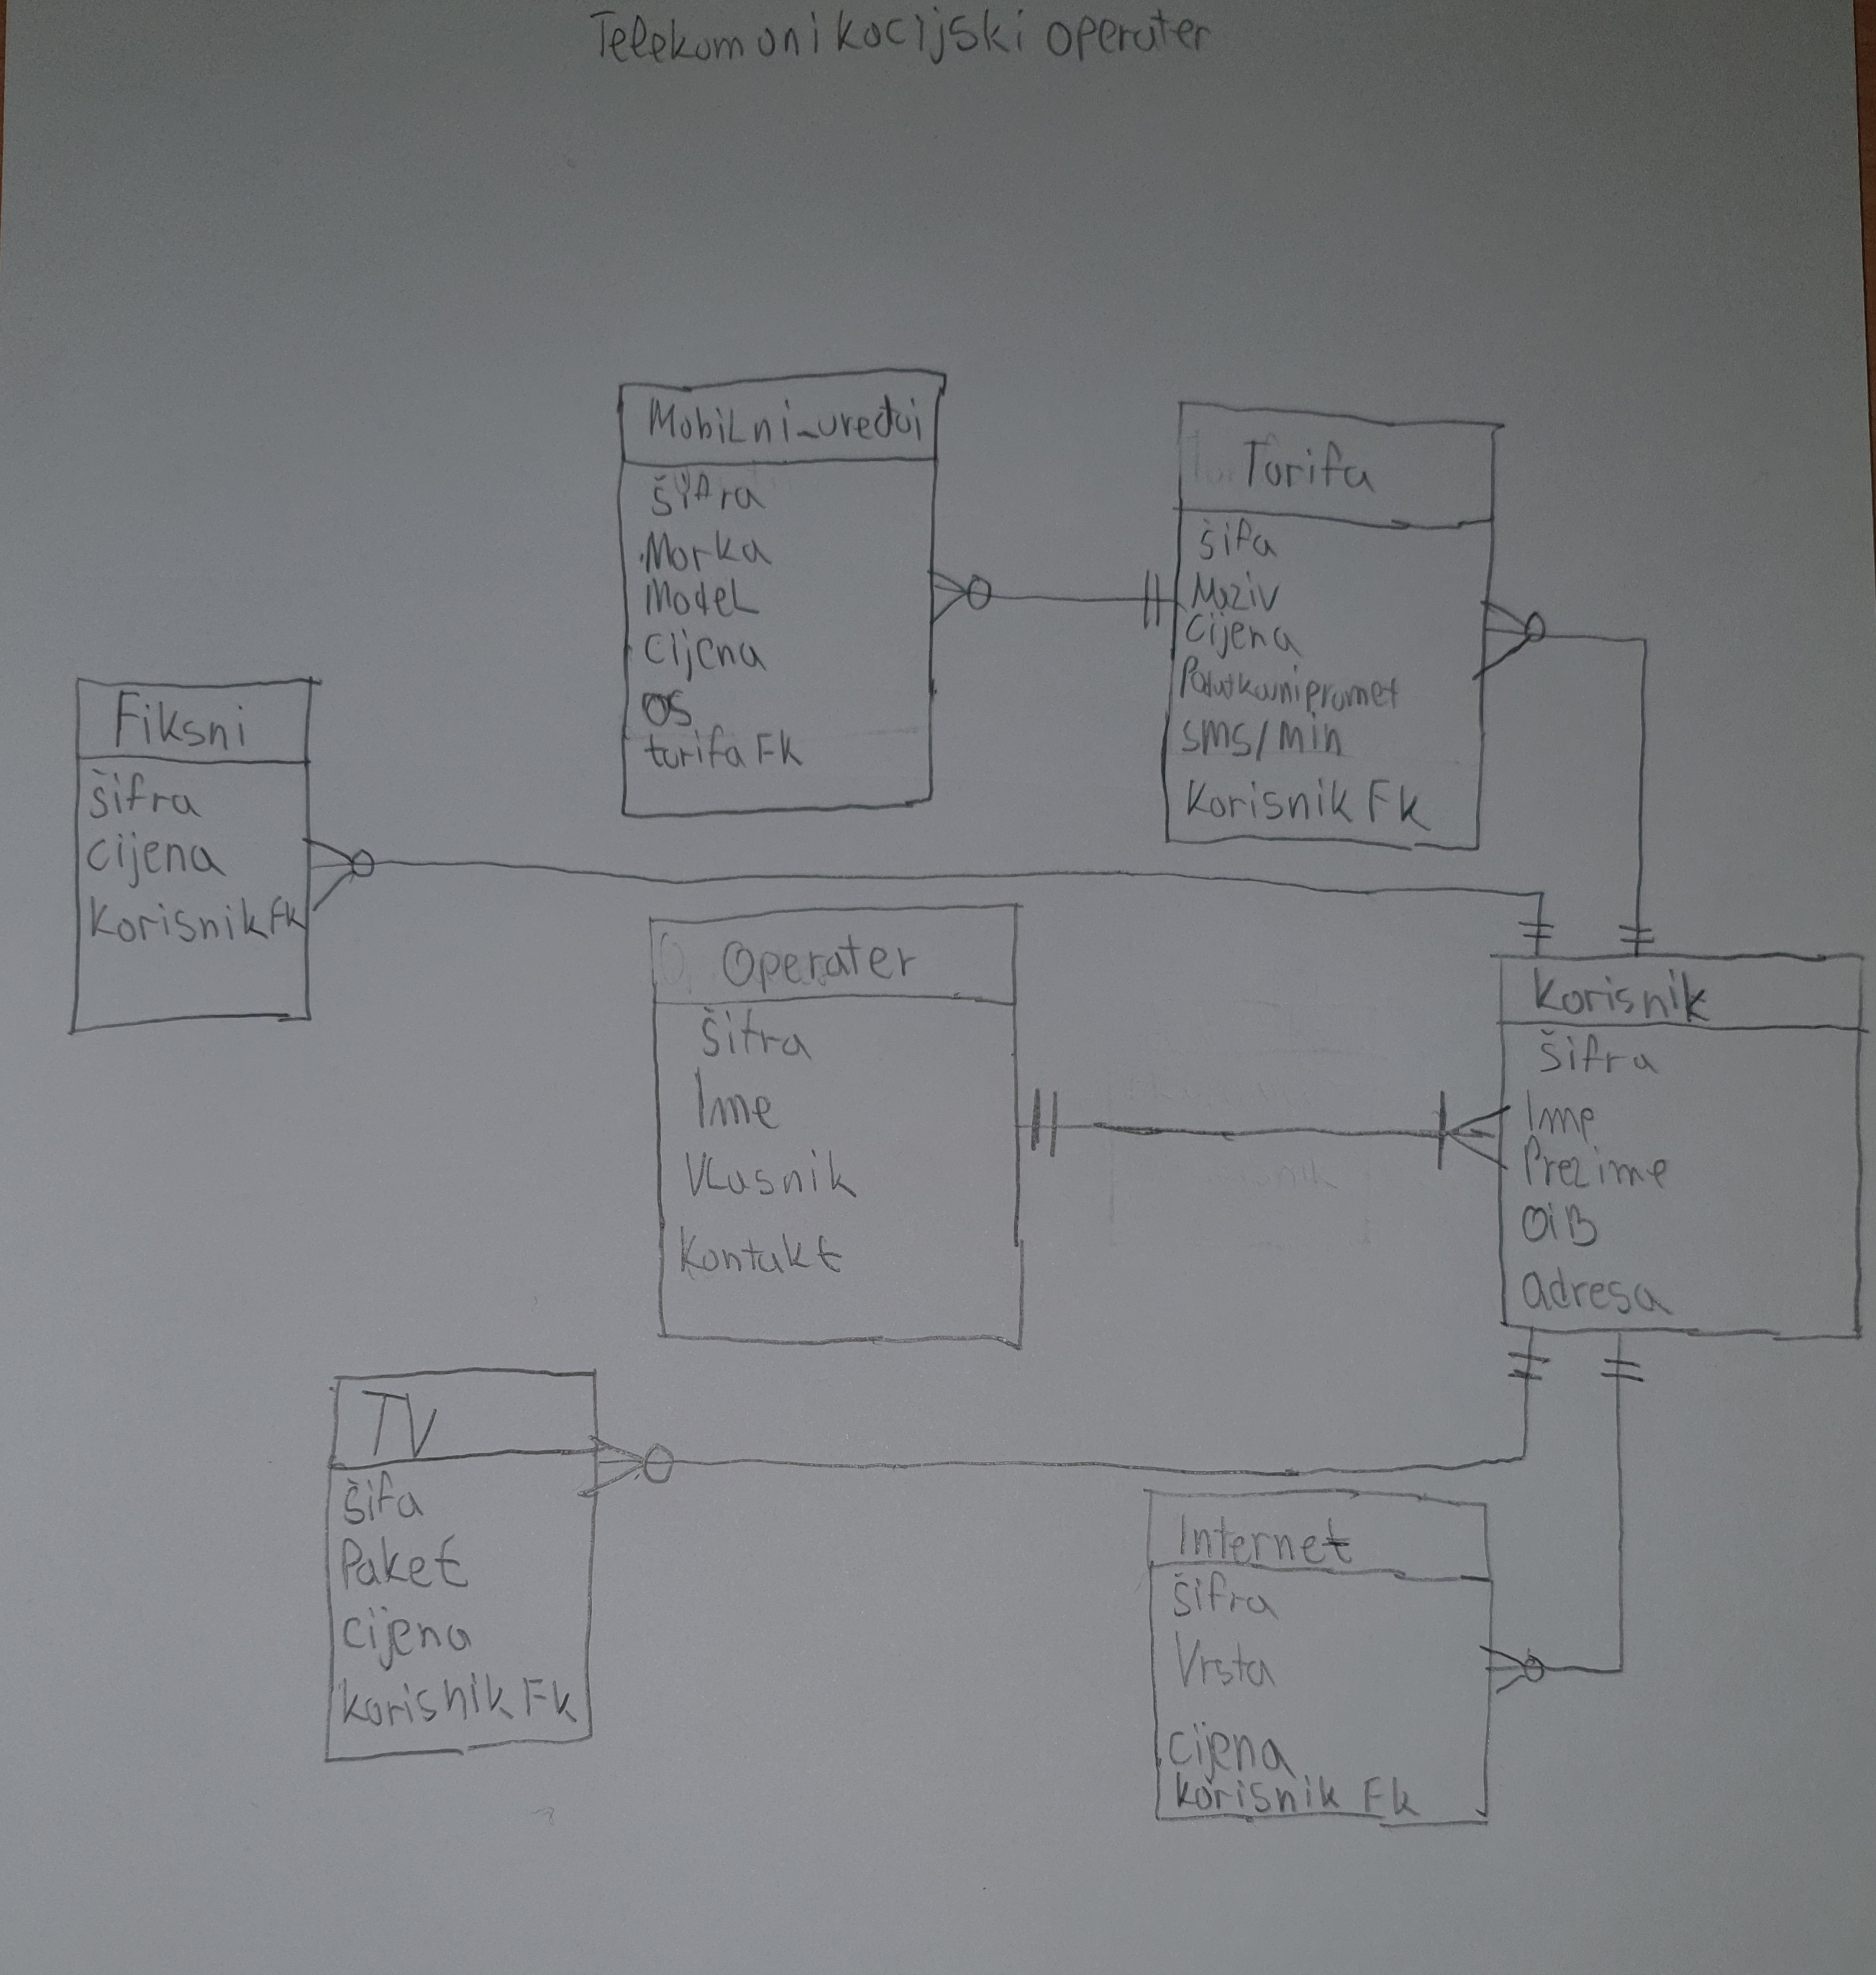 Telekomunikacijski operater
Mobilni_uređaji
šifra
Marka
Model
Cijena
OS
tarifa FK
Tarifa
šifa
Naziv
Cijena
Podatkovnipromet
sms/min
Korisnik FK
Fiksni
šifra
cijena
Korisnik FK
Operater
šifra
Ime
Vlasnik
Kontakt
Korisnik
šifra
Ime
Prezime
OiB
adresa
TV
šifa
Paket
cijena
korisnik FK
Internet
šifra
Vrsta
cijena
korisnik FK